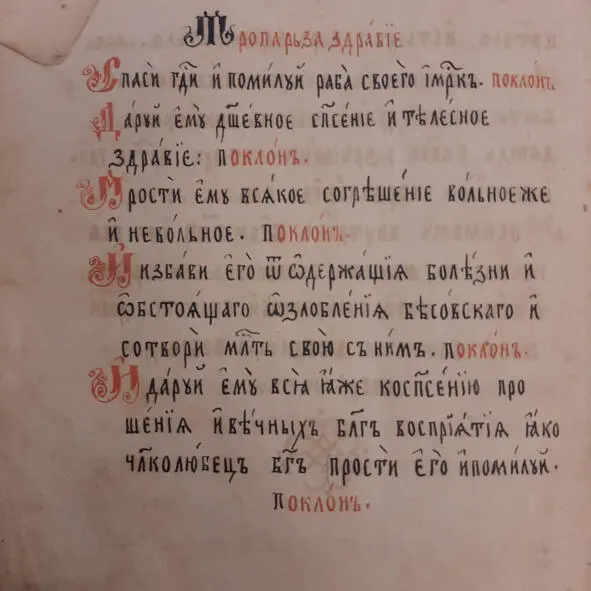 Тропарь за здра́вїе
Спаси́ гд҃и и҆ поми́лꙋй раба̀ своего̀ и҆мр҃къ. покло́нъ.
Да́рꙋй е҆мꙋ̀ дш҃е́вное сп҃се́нїе и҆ тѣле́сное
здра́вїе: покло́нъ.
Прости́ е҆мꙋ̀ вся́кое согрѣше́нїе во́льноеже
и҆ нево́льное. покло́нъ.
И҆ изба́ви е҆го̀ ѿ ѡ҆держа́щїѧ болѣ́зни и҆
ѡ҆бстоѧ́щаго ѡ҆злобле́нїѧ бѣсо́вскаго и҆
сотвори́ мл҃ть свою̀ съ ни́мъ. покло́нъ.
И҆ да́рꙋй е҆мꙋ̀ всѧ̑ ꙗ҆́же коспⷭ҇се́нїю про
ше́нїѧ и҆ вѣ́чныхъ бл҃гъ воспрїѧ́тїѧ ꙗ҆́ко
чл҃колю́бецъ бг҃ъ прости́ е҆го̀ и҆поми́лꙋй.
покло́нъ.